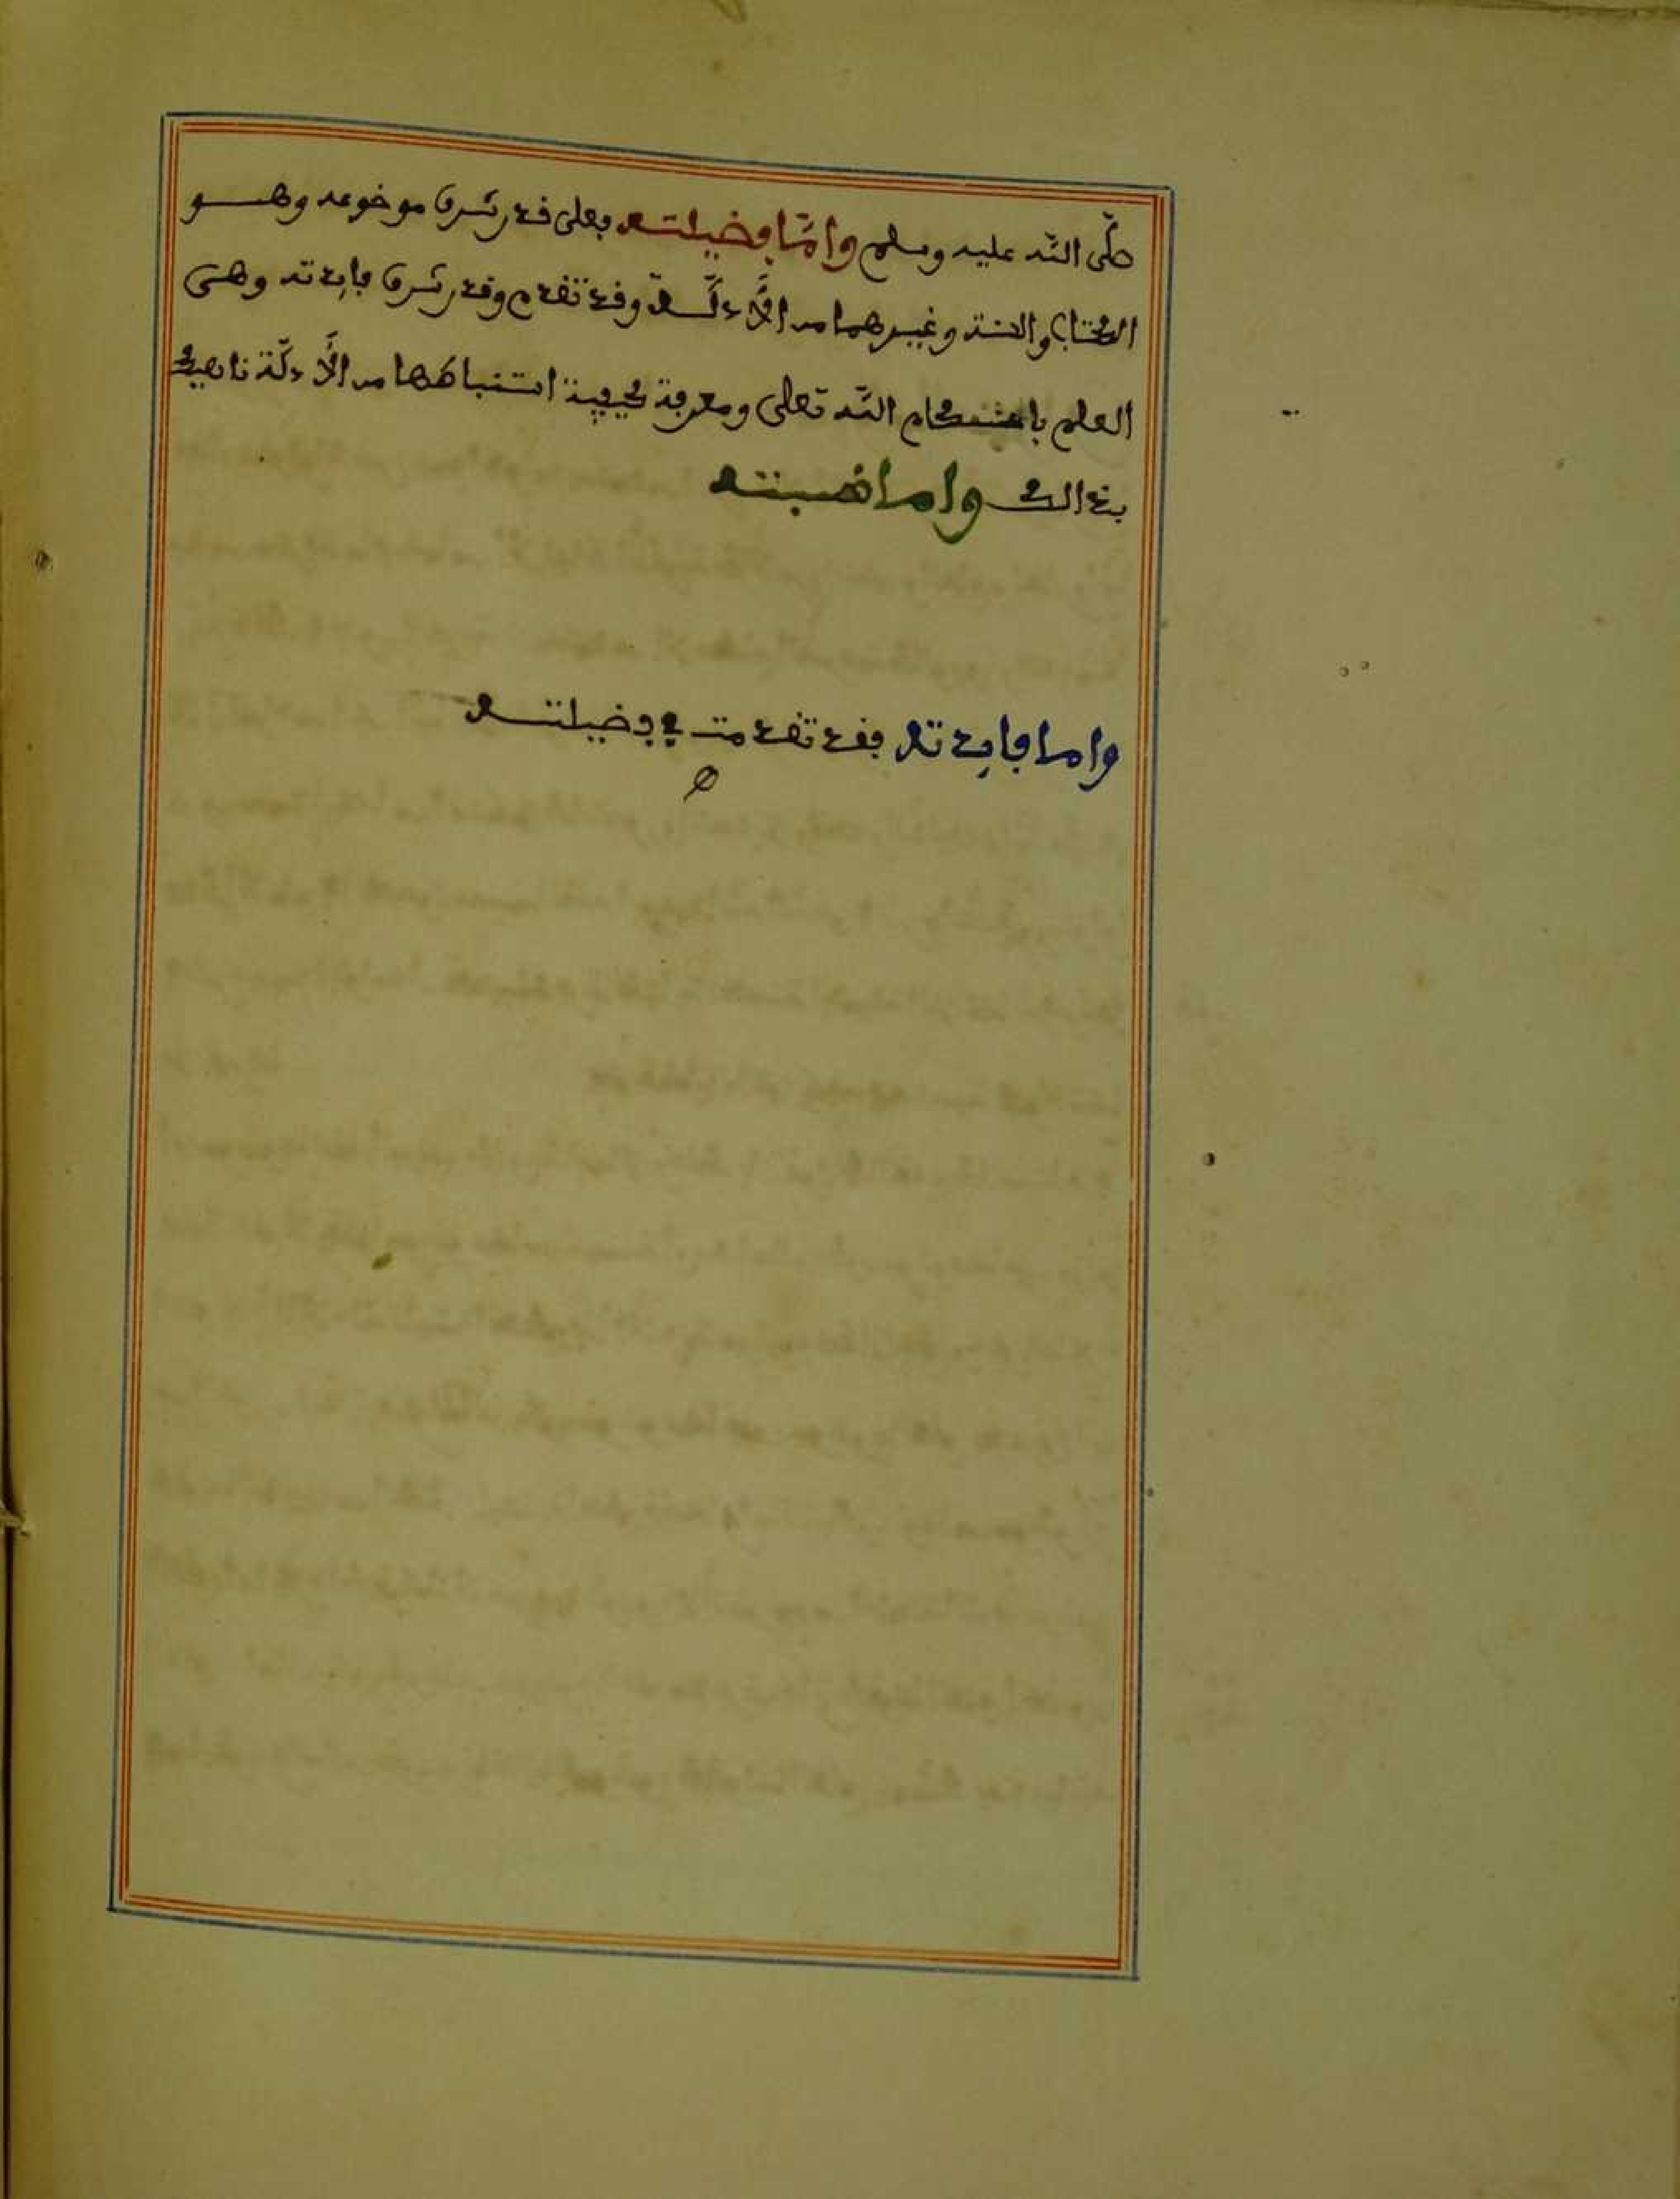 صلّى اللّه عليه وسلم وامّا فضيلته فعلى قدر شرف موضوعه وهو
الكتاب والسنة وغيرهما من الأدلّة وقد تقدم وقدر شرف فايدته وهي
العلم باحكام اللّه تعلى ومعرفة كيفية استنباطها من الأدلّة ناهيك
بذالك واما نسبته
واما فايدته فقد تقدمت في فضيلته